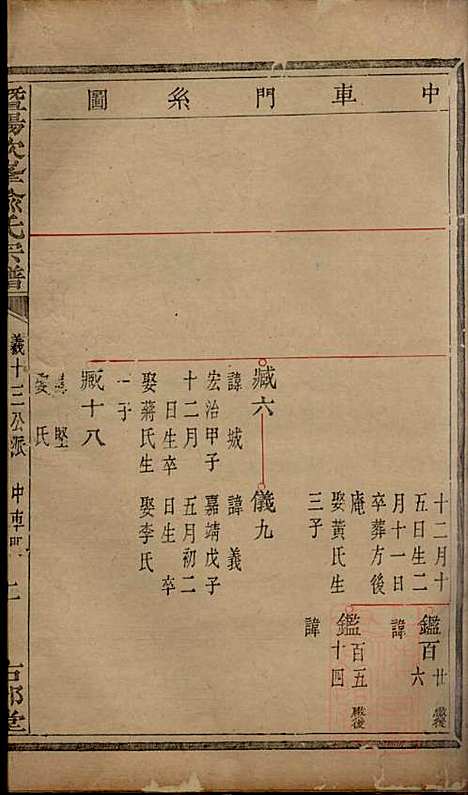 中車門系圖
十二月十
五日生二
月十一日
卒葬方後
庵
娶黄氏生
三子
鑑百廿
六
諱
繼後
鑑百五
十四
諱
繼後
臧六
諱城
宏治甲子
十二月
日生卒
娶蔣氏生
一子
儀九
諱義
嘉靖戊子
五月初二
日生卒
娶李氏
臧十八
諱堅
娶氏
暨陽次峯俞氏宗譜
義十三公派
中車門